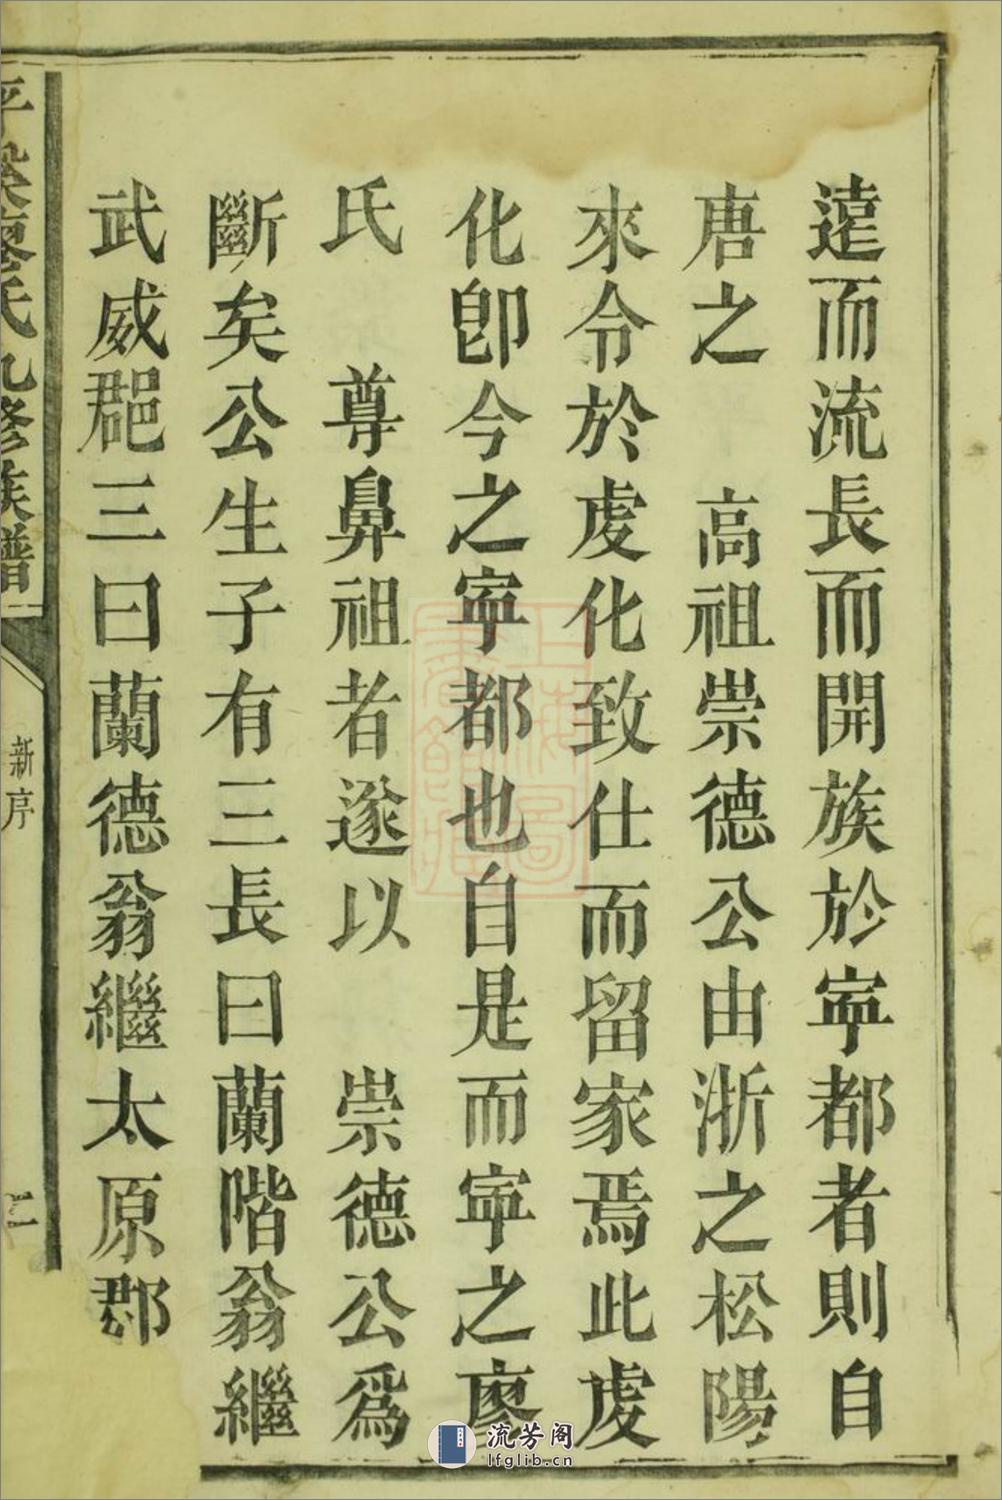 遠而流長而開族於寧都者則自
唐之 高祖崇德公由浙之松陽
來令於虔化致仕而留家焉此虔
化卽今之寧都也自是而寧之廖
氏 尊鼻祖者遂以 崇德公爲
斷矣公生子有三長曰蘭階翁繼
武威郡三曰蘭德翁繼太原郡
廖氏九修族譜
新序
二
流芳阁
lfglib.cn